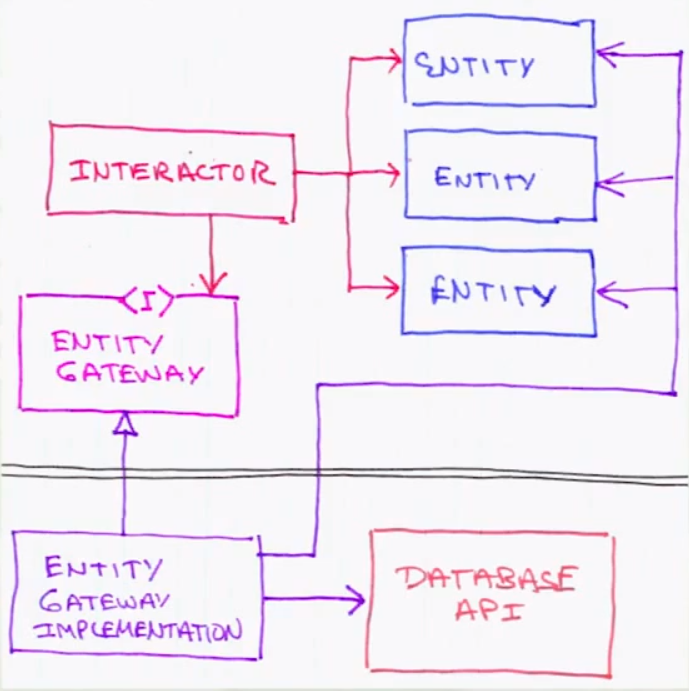 ENTITY
INTERACTOR
ENTITY
<I>
ENTITY
ENTITY
GATEWAY
ENTITY
GATEWAY
IMPLEMENTATION
DATABASE
API